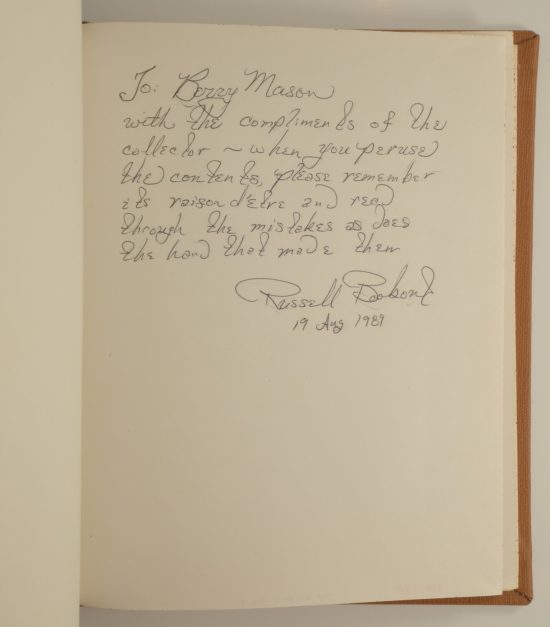 To: Berry Mason
with the compliments of the
collector ~ when you peruse
the contents, please remember
its raison d'être and read
through the mistakes as does
the hand that made them
Russell
19 Aug 1989